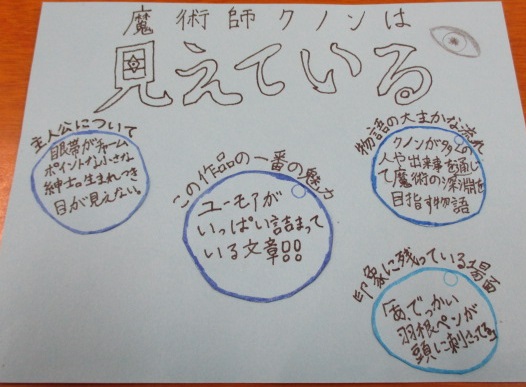 魔術師クノンは
見えている
主人公について
眼帯がチャーム
ポイントな小さな
紳士。生まれつき
目が見えない。
この作品の一番の魅力
ユーモアが
いっぱい詰まって
いる文章!!
物語の大まかな流れ
クノンが多くの
人や出来事を通し
て魔術の深淵を
目指す物語
印象に残っている場面
「あ、でっかい
羽根ペンが
頭に刺さってる」